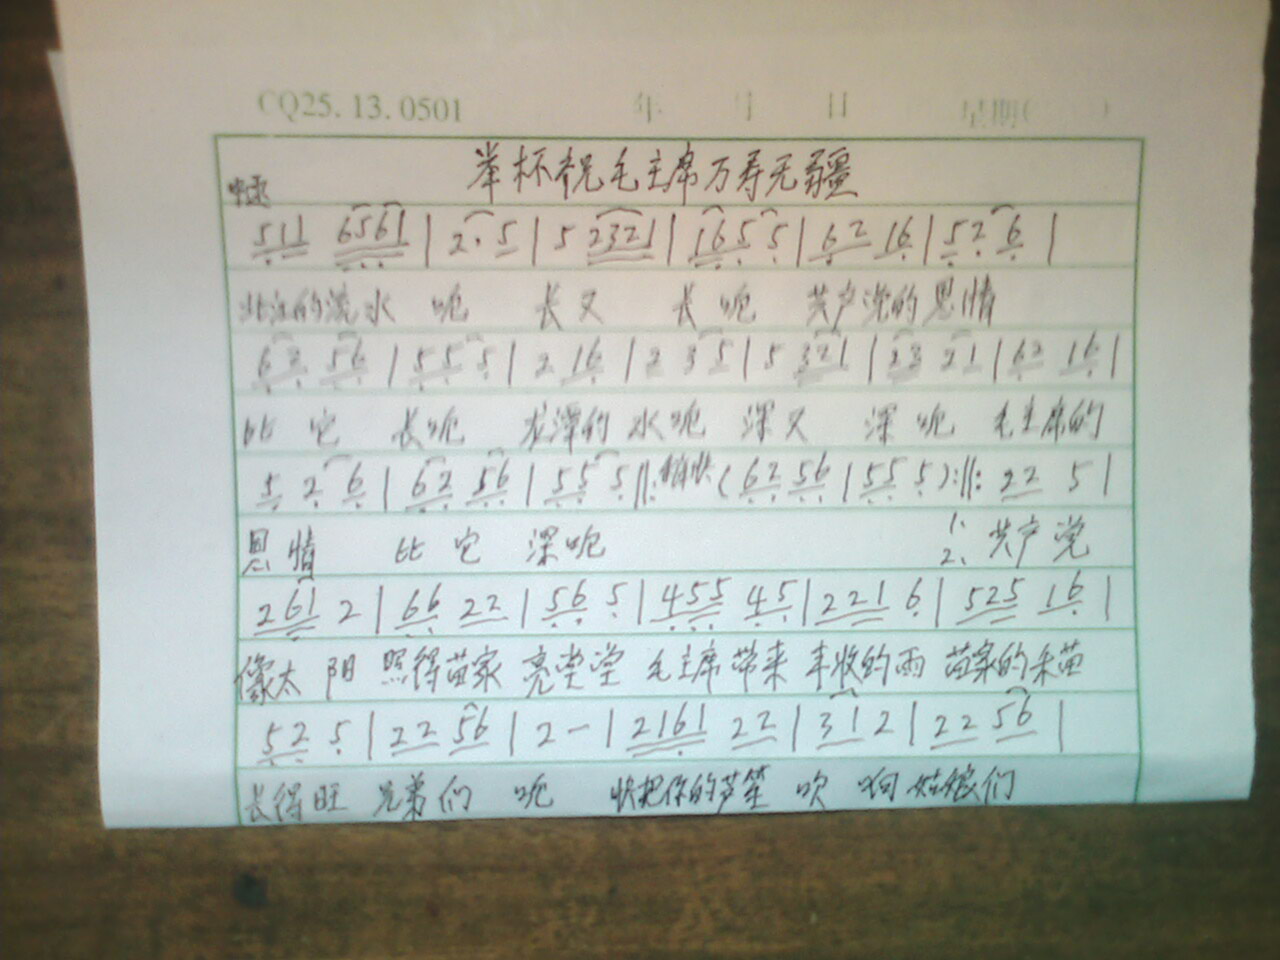 CQ25.13.0501 年 月 日 星期( )
举杯祝毛主席万寿无疆
中速
511 6561 | 2· 5 | 5 2321 | 1655 | 62 16 | 52 6 |
北江的流水 呃 长又 长呃 共产党的恩情
62 56 | 55 5 | 2 16 | 2 35 | 5 321 | 23 21 | 62 16 |
比它 长呃 龙潭的水呃 深又 深呃 毛主席的
5 2 6 | 62 56 | 55 5 ‖: 稍快 (62 56 | 55 5) :‖: 22 5 |
恩情 比它 深呃 1、2、共产党
261 2 | 66 22 | 56 5 | 455 45 | 221 6 | 525 16 |
像太阳 照得苗家 亮堂堂 毛主席带来 丰收的雨 苗家的禾苗
52 5 | 22 56 | 2 — | 2161 22 | 31 2 | 22 56 |
长得旺 兄弟们 呃 快把你的芦笙 吹响 姑娘们